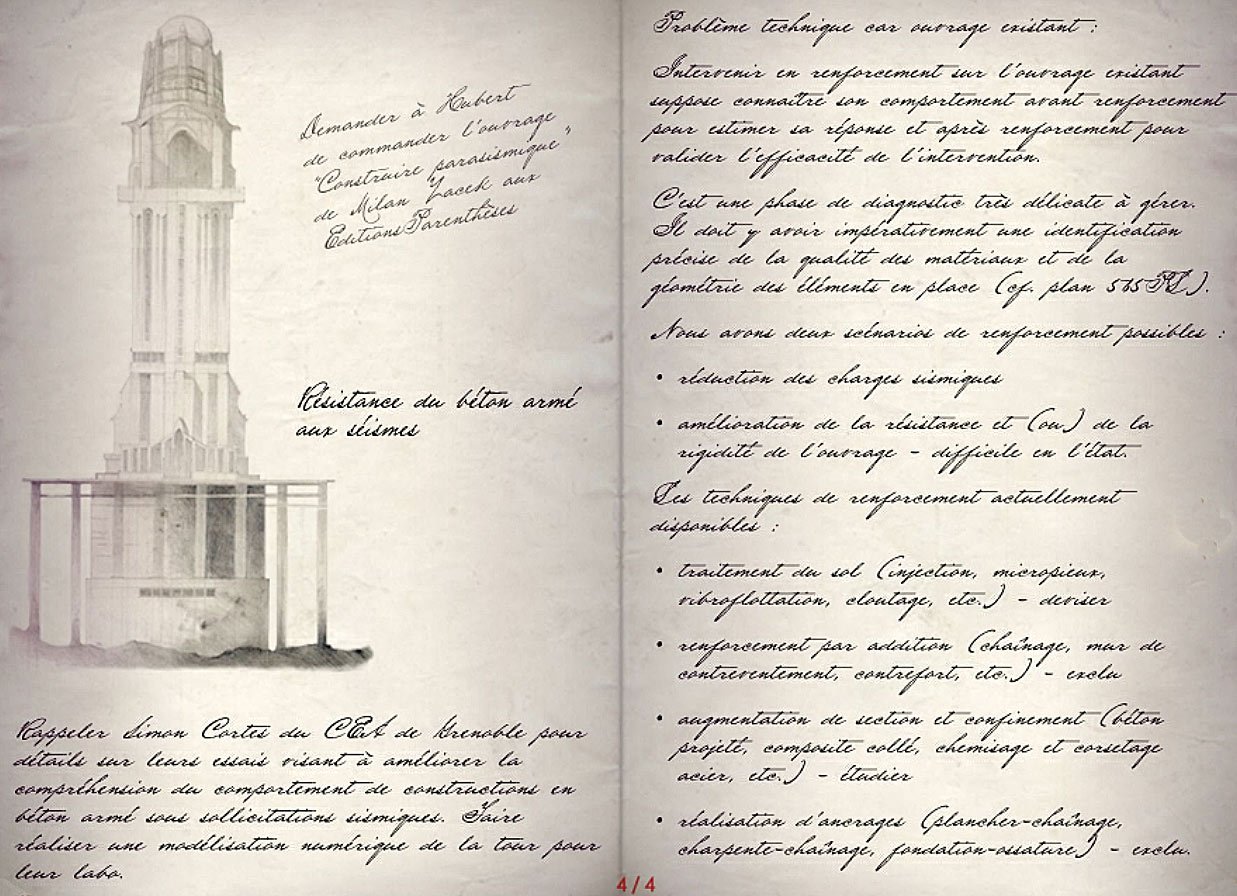 Demander à Hubert
de commander l'ouvrage
"Construire parasismique"
de Milan Zacek aux
Editions Parenthèses
Résistance du béton armé
aux séismes
Rappeler Simon Cortes du CEA de Grenoble pour
détails sur leurs essais visant à améliorer la
compréhension du comportement de constructions en
béton armé sous sollicitations sismiques. Faire
réaliser une modélisation numérique de la tour pour
leur labo.
Problème technique car ouvrage existant :
Intervenir en renforcement sur l'ouvrage existant
suppose connaître son comportement avant renforcement
pour estimer sa réponse et après renforcement pour
valider l'efficacité de l'intervention.
C'est une phase de diagnostic très délicate à gérer.
Il doit y avoir impérativement une identification
précise de la qualité des matériaux et de la
géométrie des éléments en place (cf. plan 565PL).
Nous avons deux scénarios de renforcement possibles :
• réduction des charges sismiques
• amélioration de la résistance et (ou) de la
rigidité de l'ouvrage - difficile en l'état.
Les techniques de renforcement actuellement
disponibles :
• traitement du sol (injection, micropieux,
vibroflottation, cloutage, etc.) - deviser
• renforcement par addition (chaînage, mur de
contreventement, contrefort, etc.) - exclu
• augmentation de section et confinement (béton
projeté, composite collé, chemisage et corsetage
acier, etc.) - étudier
• réalisation d'ancrages (plancher-chaînage,
charpente-chaînage, fondation-ossature) - exclu.
4/4